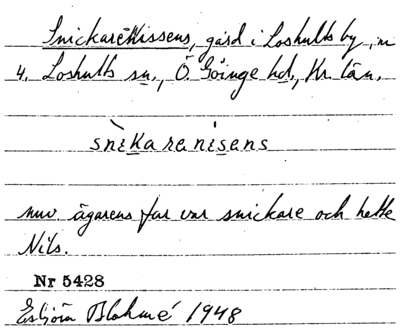 SnickareNissens, gård i Loshults by, nr
4. Loshults sn., Ö. Göinge hd., Kr. län.
snikarenisens
nuv. ägarens far var snickare och hette
Nils.
Nr 5428
Esbjörn Blohmé 1948